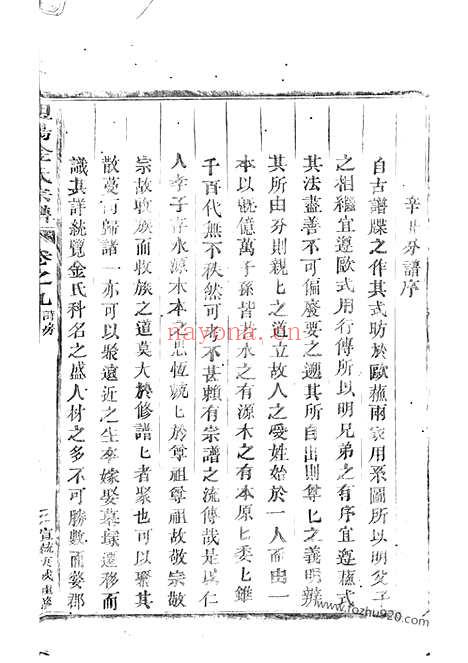 辛丑分譜序
自古譜牒之作其式昉於歐蘇兩家用系圖所以明父子
之相繼宜遵歐式用行傳所以明兄弟之有序宜遵蘇式
其法盡善不可偏廢要之遡其所自出則尊匕之義明辨
其所由分則親匕之道立故人之受姓始於一人而由一
本以觀億萬子孫皆若水之有源木之有本原匕委匕雖
千百代無不秩然可考不甚賴有宗譜之流傳哉是以仁
人孝子存水源木本之思恆兢匕於尊祖尊祖故敬宗敬
宗故收族而收族之道莫大於修譜匕者聚也可以聚其
散蔓可歸諸一亦可以聚遠近之生卒嫁娶墓塚遷移而
識其詳統覽金氏科名之盛人材之多不可勝數而婺郡
陽金氏宗譜
卷之九
詩房
宣統庚戌重修
nayona.cn
www.fozhu920.com